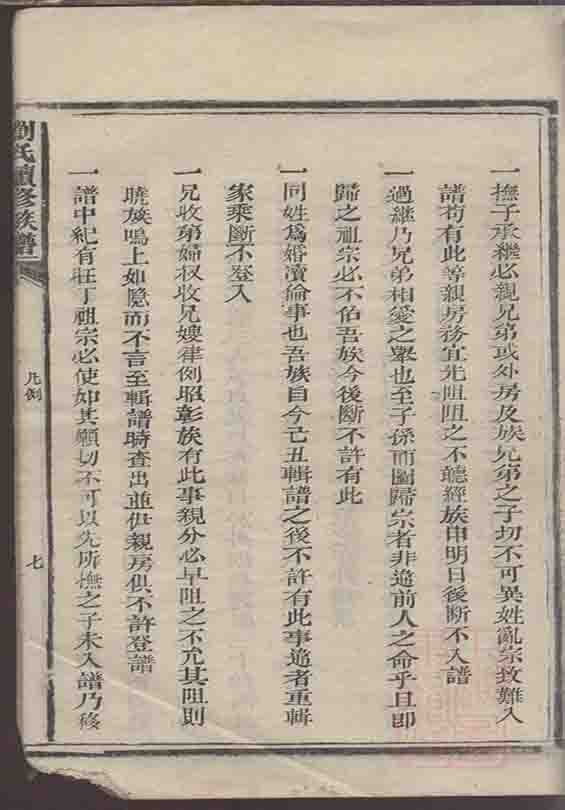 一撫子承繼必親兄第或外房及族兄第之子切不可異姓亂宗致難入
譜苟有此等親房務宜先阻阻之不聽經族申明日後斷不入譜
一過繼乃兄弟相愛之舉也至子孫而圖歸宗者非違前人之命乎且即
歸之祖宗必不佑吾族今後斷不許有此
一同姓為婚瀆倫事也吾族自今己丑輯譜之後不許有此事違者重輯
家乘斷不登入
一兄收弟婦叔收兄嫂律例昭彰族有此事親分必早阻之不允其阻則
曉族鳴上如隱而不言至輯譜時查出並俱親房俱不許登譜
一譜中紀有旺丁祖宗必使如其願切不可以先所撫之子未入譜乃移
劉氏續修族譜
凡例
七